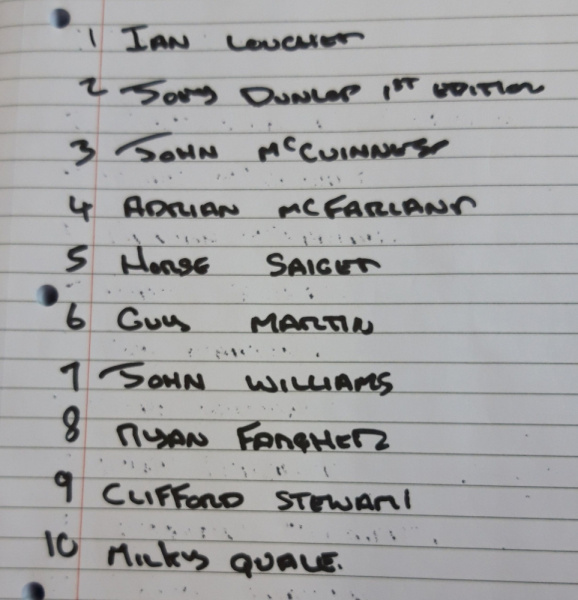 1 IAN LOUCHER
2 JOEY DUNLOP 1ST EDITION
3 JOHN MCGUINNESS
4 ADRIAN MCFARLAND
5 HORSE SAIGER
6 GUY MARTIN
7 JOHN WILLIAMS
8 RYAN FARQHER
9 CLIFFORD STEWART
10 MILKY QUALE.